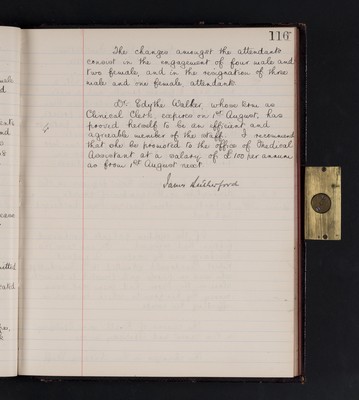 116
The changes amongst the attendants
consist in the engagement of four male and
two female, and in the resignation of three
male and one female attendants.
Dr. Edythe Walker, whose term as
Clinical Clerk expires on 1st August, has
proved herself to be an efficient and
agreeable member of the staff. I recommend
that she be promoted to the office of Medical
Assistant at a salary of £100 per annum
as from 1st August next.
James Rutherford